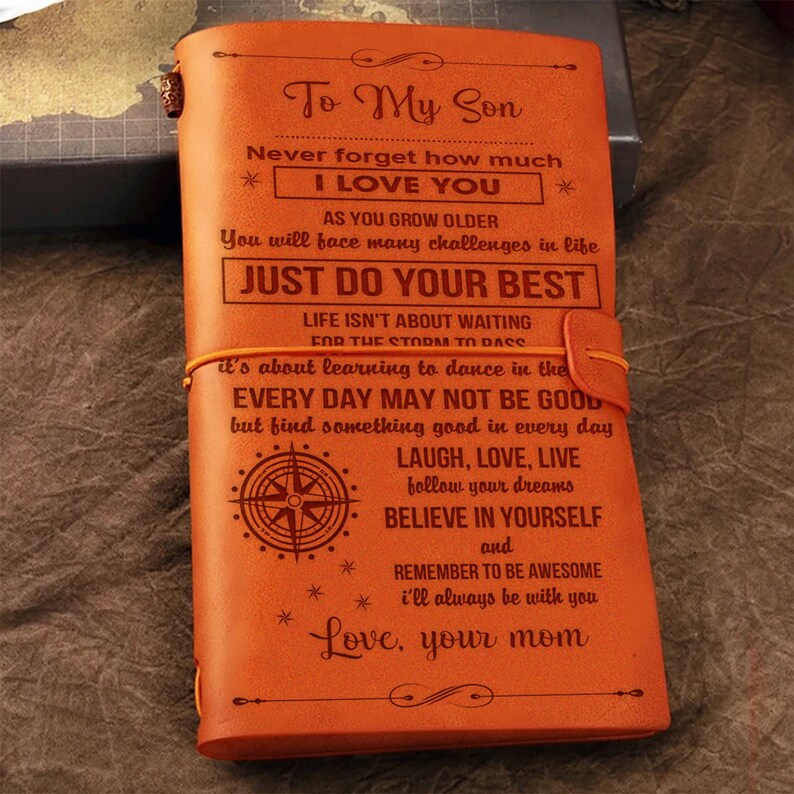 To My Son
Never forget how much
I LOVE YOU
AS YOU GROW OLDER
You will face many challenges in life
JUST DO YOUR BEST
LIFE ISN'T ABOUT WAITING
FOR THE STORM TO PASS
it's about learning to dance in the
EVERY DAY MAY NOT BE GOOD
but find something good in every day
LAUGH, LOVE, LIVE
follow your dreams
BELIEVE IN YOURSELF
and
REMEMBER TO BE AWESOME
i'll always be with you
Love, your mom